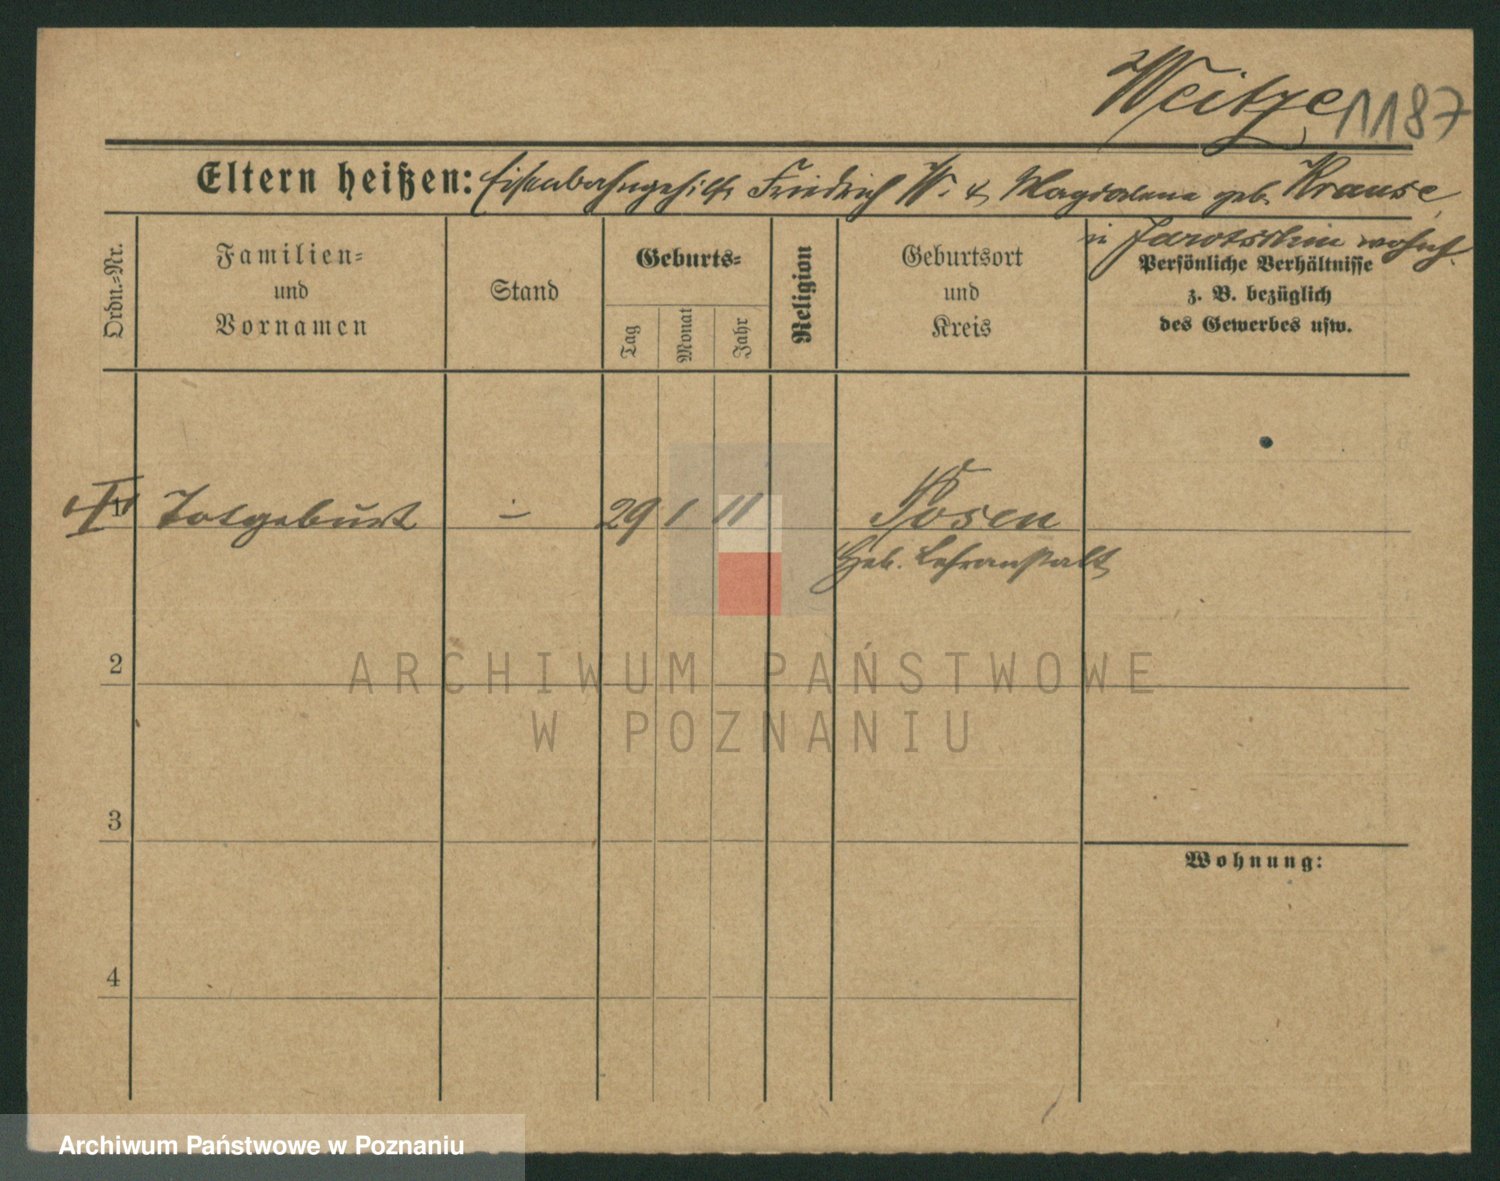 Weitze
1187
Eltern heißen: Eisenbahngehilfe Friedrich W. & Magdalena geb. Krause,
in Jarotschin wohnh.
Ordn.=Nr.
Familien=
und
Vornamen
Stand
Geburts=
Tag
Monat
Jahr
Religion
Geburtsort
und
Kreis
Persönliche Verhältnisse
z. B. bezüglich
des Gewerbes usw.
1 Totgeburt – 29 1 11 Posen
Heb. Lehranstalt
2
ARCHIWUM PAŃSTWOWE
W POZNANIU
3
Wohnung:
4
Archiwum Państwowe w Poznaniu